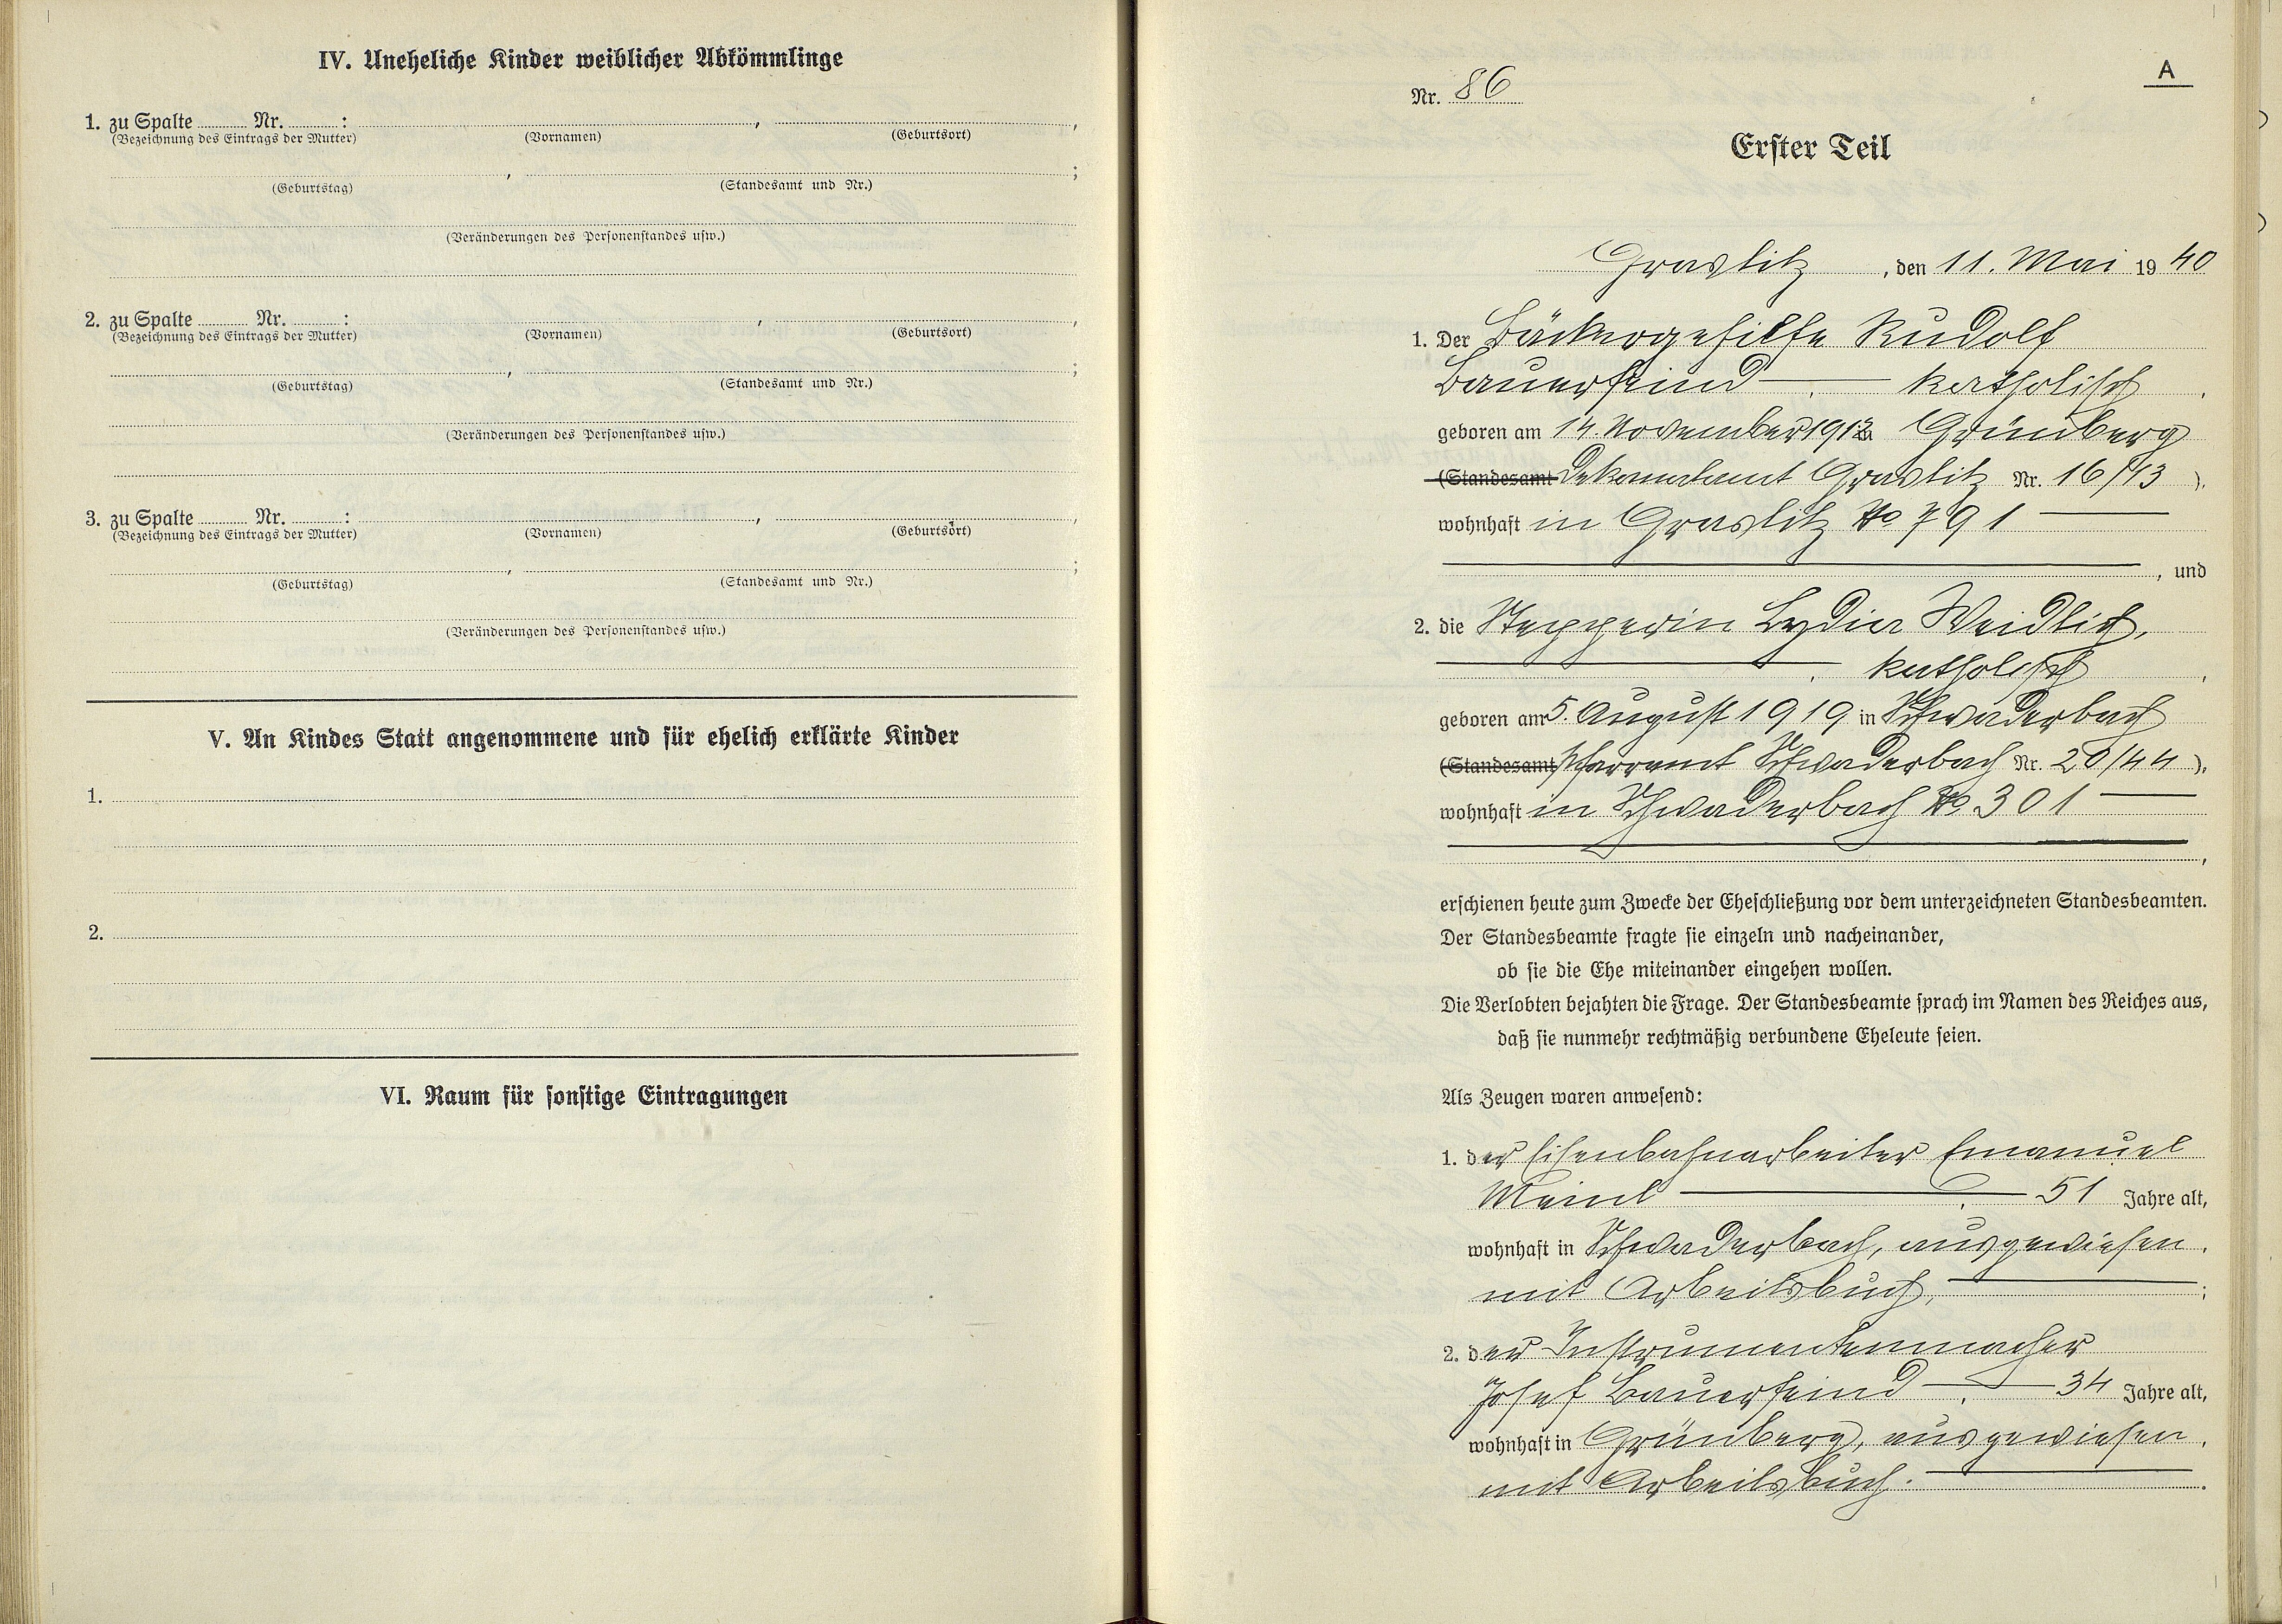 IV. Uneheliche Kinder weiblicher Abkömmlinge
1. zu Spalte ........ Nr. ........ :
(Bezeichnung des Eintrags der Mutter) (Vornamen) (Geburtsort)
(Geburtstag) (Standesamt und Nr.)
(Veränderungen des Personenstandes usw.)
2. zu Spalte ........ Nr. ........ :
(Bezeichnung des Eintrags der Mutter) (Vornamen) (Geburtsort)
(Geburtstag) (Standesamt und Nr.)
(Veränderungen des Personenstandes usw.)
3. zu Spalte ........ Nr. ........ :
(Bezeichnung des Eintrags der Mutter) (Vornamen) (Geburtsort)
(Geburtstag) (Standesamt und Nr.)
(Veränderungen des Personenstandes usw.)
V. An Kindes Statt angenommene und für ehelich erklärte Kinder
1.
2.
VI. Raum für sonstige Eintragungen
A
Nr. 86
Erster Teil
Graslitz, den 11. Mai 1940
1. Der Bäckergehilfe Rudolf
Bauerfeind — katholisch,
geboren am 14. November 1912 in Grünberg
(Standesamt Dekanalamt Graslitz Nr. 16/113),
wohnhaft in Graslitz No 791 —
, und
2. die Stepperin Lydia Weidlich,
— katholisch,
geboren am 5. August 1919 in Schwaderbach
(Standesamt Pfarramt Schwaderbach Nr. 20/44),
wohnhaft in Schwaderbach No 301 —
,
erschienen heute zum Zwecke der Eheschließung vor dem unterzeichneten Standesbeamten.
Der Standesbeamte fragte sie einzeln und nacheinander,
ob sie die Ehe miteinander eingehen wollen.
Die Verlobten bejahten die Frage. Der Standesbeamte sprach im Namen des Reiches aus,
daß sie nunmehr rechtmäßig verbundene Eheleute seien.
Als Zeugen waren anwesend:
1. der Eisenbahnarbeiter Emanuel
Meinl — 51 Jahre alt,
wohnhaft in Schwaderbach, ausgewiesen
mit Arbeitsbuch, — ;
2. der Instrumentenmacher
Josef Bauerfeind — 34 Jahre alt,
wohnhaft in Grünberg, ausgewiesen
mit Arbeitsbuch. —